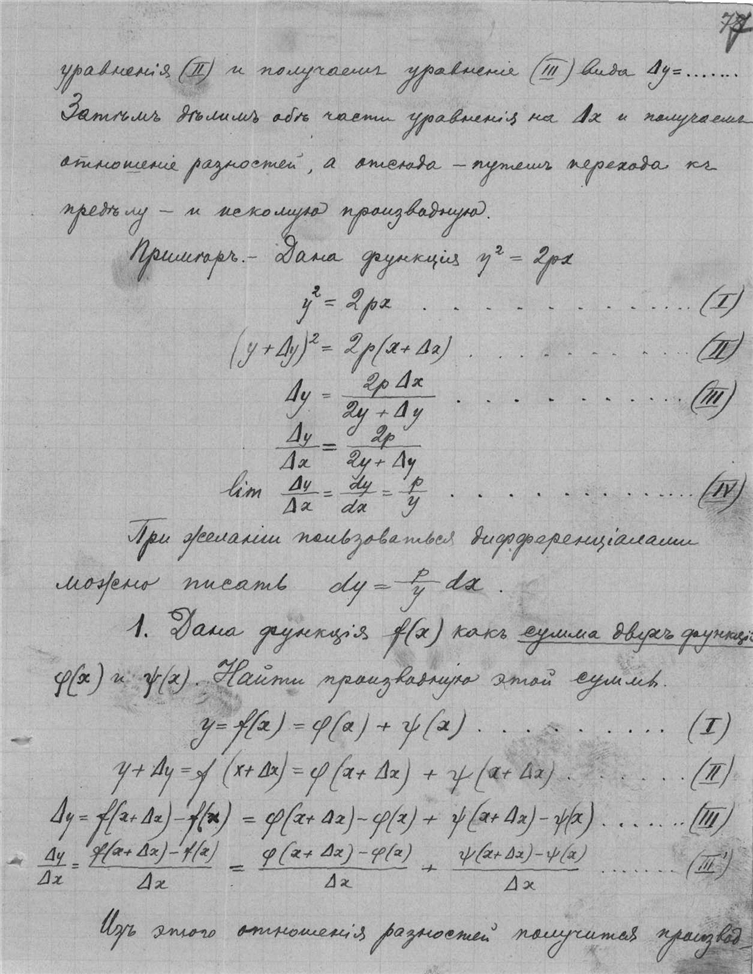 77
уравненія (II) и получаемъ уравненіе (III) вида Δy=.......
Затѣмъ дѣлимъ обѣ части уравненія на Δx и получаемъ
отношеніе разностей, а отсюда – путемъ перехода къ
предѣлу – и искомую производную.
Примѣръ.– Дана функція y² = 2px
y² = 2px . . . . . . . . . . . . . (I)
(y + Δy)² = 2p(x + Δx) . . . . . . . . . . . (II)
Δy = 2p Δx / (2y + Δy) . . . . . . . . . . . (III)
Δy/Δx = 2p / (2y + Δy)
lim Δy/Δx = dy/dx = p/y . . . . . . . . . . . . . (IV)
При желаніи пользоваться дифференціалами
можно писать dy = p/y dx.
1. Дана функція f(x) какъ сумма двухъ функцій
φ(x) и ψ(x). Найти производную этой суммы.
y = f(x) = φ(x) + ψ(x) . . . . . . . . . . (I)
y + Δy = f (x + Δx) = φ(x + Δx) + ψ(x + Δx) . . . . . . . (II)
Δy = f(x + Δx) – f(x) = φ(x + Δx) – φ(x) + ψ(x + Δx) – ψ(x) . . . . . . (III)
Δy/Δx = (f(x + Δx) – f(x))/Δx = (φ(x + Δx) – φ(x))/Δx + (ψ(x + Δx) – ψ(x))/Δx ........ (III')
Изъ этого отношенія разностей получится производ–